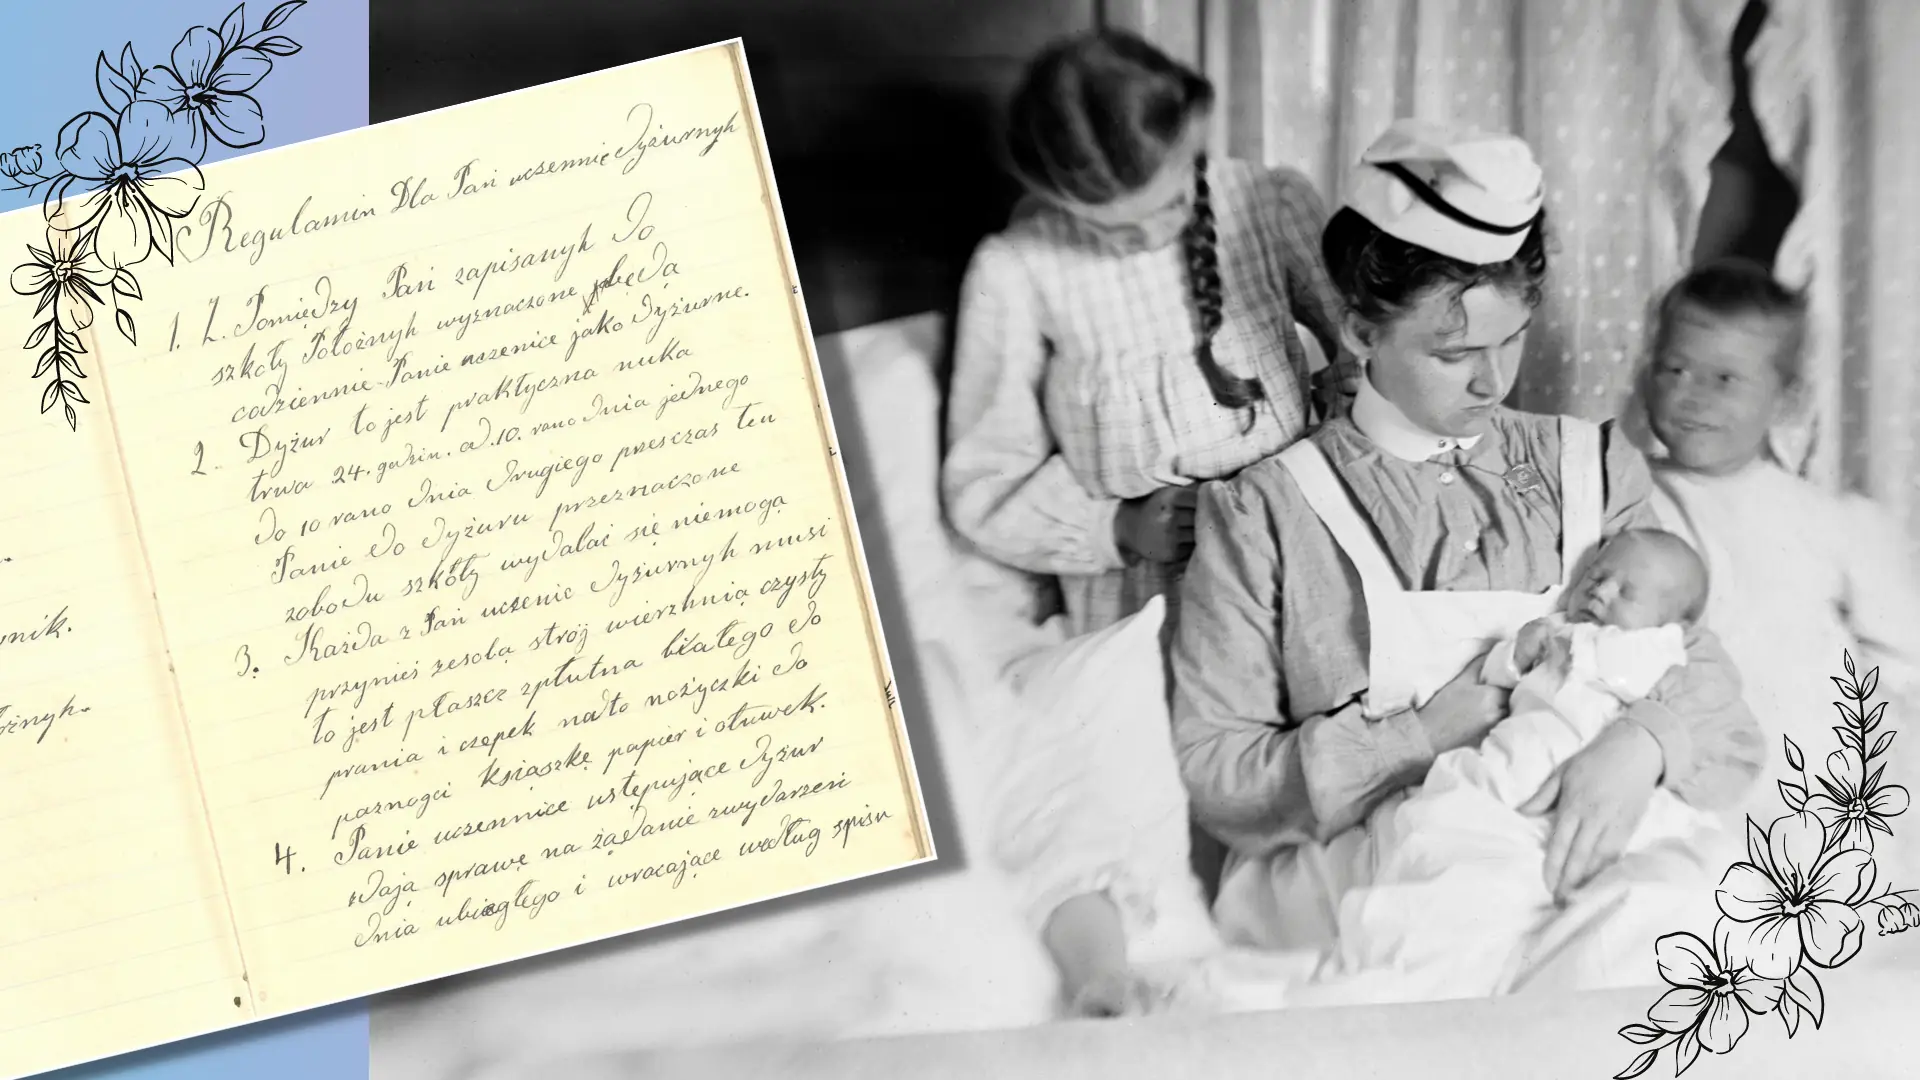 Regulamin Dla Pań uczennic Dyżurnyh
1. Z. Pomiędzy Pań zapisanyh do
szkoły Położnyh wyznaczone będą
codziennie Panie uczenice jako Dyżurne.
2. Dyżur to jest praktyczna nuka
trwa 24. godzin. od. 10. rano dnia jednego
do 10 rano dnia drugiego przeszczas ten
Panie do dyżuru przeznaczone
zobodu szkoły wydalać się niemogą
3. Każda z Pań uczenic dyżurnyh musi
przynieś zesobą strój wierzhnią czysty
to jest płaszcz zpłutna białego do
prania i czepek nadto nożyczki do
paznogci ksiąszkę papier i ołuwek.
4. Panie uczennice ustępujące dyżur
dają sprawę na żądanie zwydarzeń
dnia ubiegłego i wracające według spisu
wnik.